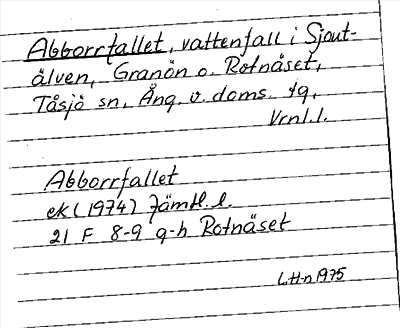 Abborrfallet, vattenfall i Sjout-
älven, Granön o. Rotnäset,
Tåsjö sn, Ång. v. doms. tg,
Vrnl. l.
Abborrfallet
ek (1974) Jämtl. l.
21 F 8-9 g-h Rotnäset
LH-n 1975